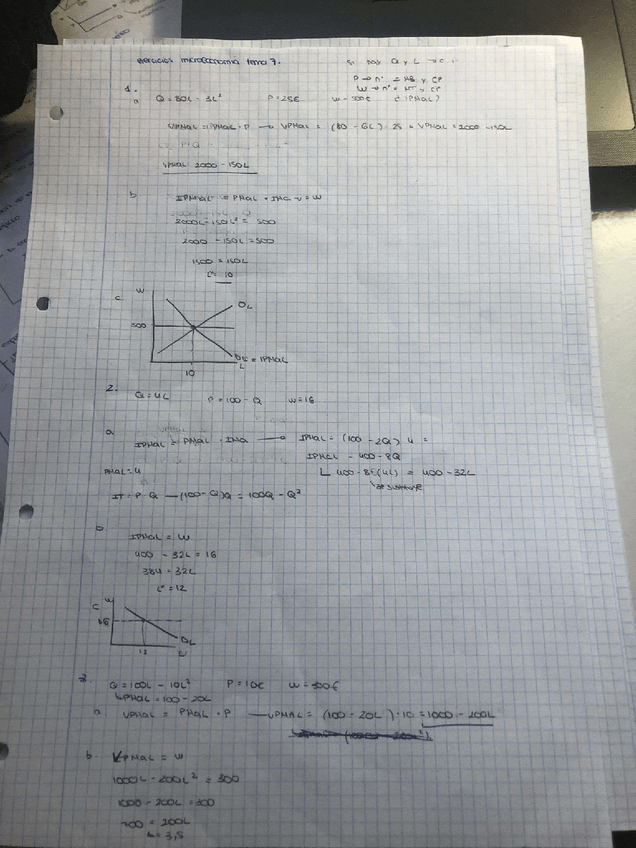 ejercicios microeconomia tema 7.
si hay Q y L
1.
a Q = 80L - 3L² P = 25€ w = 500€ (IPMaL)
VPMaL = PMaL · P → VPMaL = (80 - 6L) · 25 = VPMaL = 2000 - 150L
VPMaL 2000 - 150L
b IPMaL = PMaL · IMa = w
2000L - 150L² = 500
2000 - 150L = 500
1500 = 150L
L* = 10
c. w
OL
500
= IPMaL
L
10
2.
Q = 4L P = 100 - Q w = 16
a.
IPMaL = PMaL · IMa → IPMaL = (100 - 2Q) 4 =
IPMaL = 400 - 8Q
PMaL = 4
400 - 8(4L) = 400 - 32L
IT = P · Q — (100 - Q)Q = 100Q - Q²
b
IPMaL = w
400 - 32L = 16
384 = 32L
L* = 12
c w
16
DL
12 L
3.
Q = 100L - 10L² P = 10€ w = 300€
PMaL = 100 - 20L
a. VPMaL = PMaL · P — VPMaL = (100 - 20L) · 10 = 1000 - 200L
b. VPMaL = w
1000L - 200L² = 300
1000 - 200L = 300
700 = 200L
L = 3,5